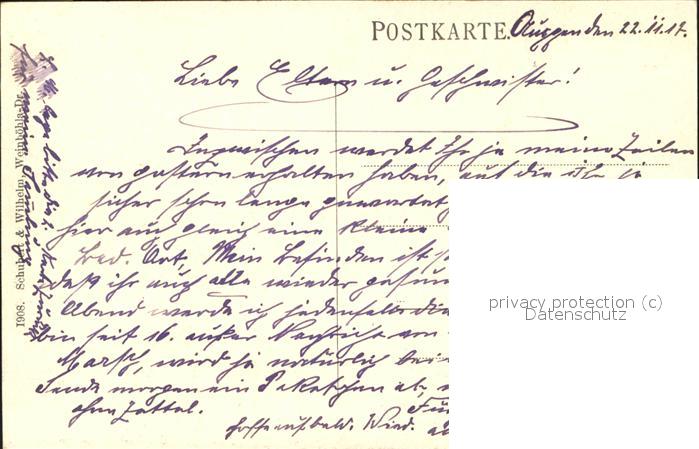 POSTKARTE.
Auggen den 22.11.17.
Liebe Eltern u. Geschwister!
Inzwischen werdet Ihr ja meine Zeilen
von gestern erhalten haben, auf die ihr ja
sicher schon lange gewartet
hier auch gleich eine kleine
Bad. Ort, Mein Befinden ist
daß ihr auch alle wieder gesund
Abend werde ich jedenfalls die
bin seit 16. außer Nachricht von
Marsch, wird ja natürlich bei
Sende morgen ein Paketchen ab,
ohne Zettel.
hoffe auf bald. Wied.
1908. Schubert & Wilhelm, Weinböhla-Dr.
privacy protection (c)
Datenschutz